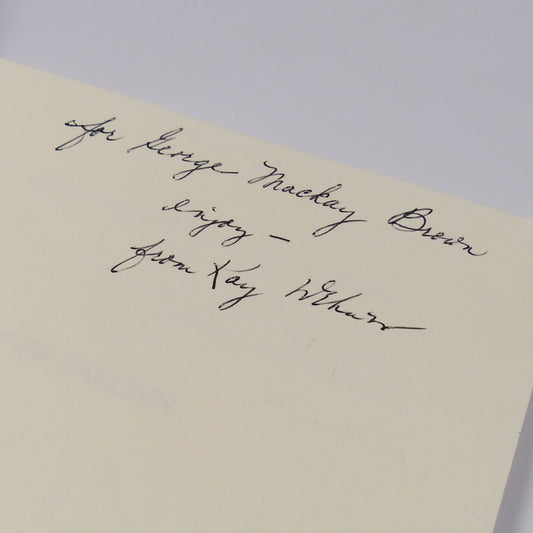 for George Mackay Brown
enjoy –
from Kay